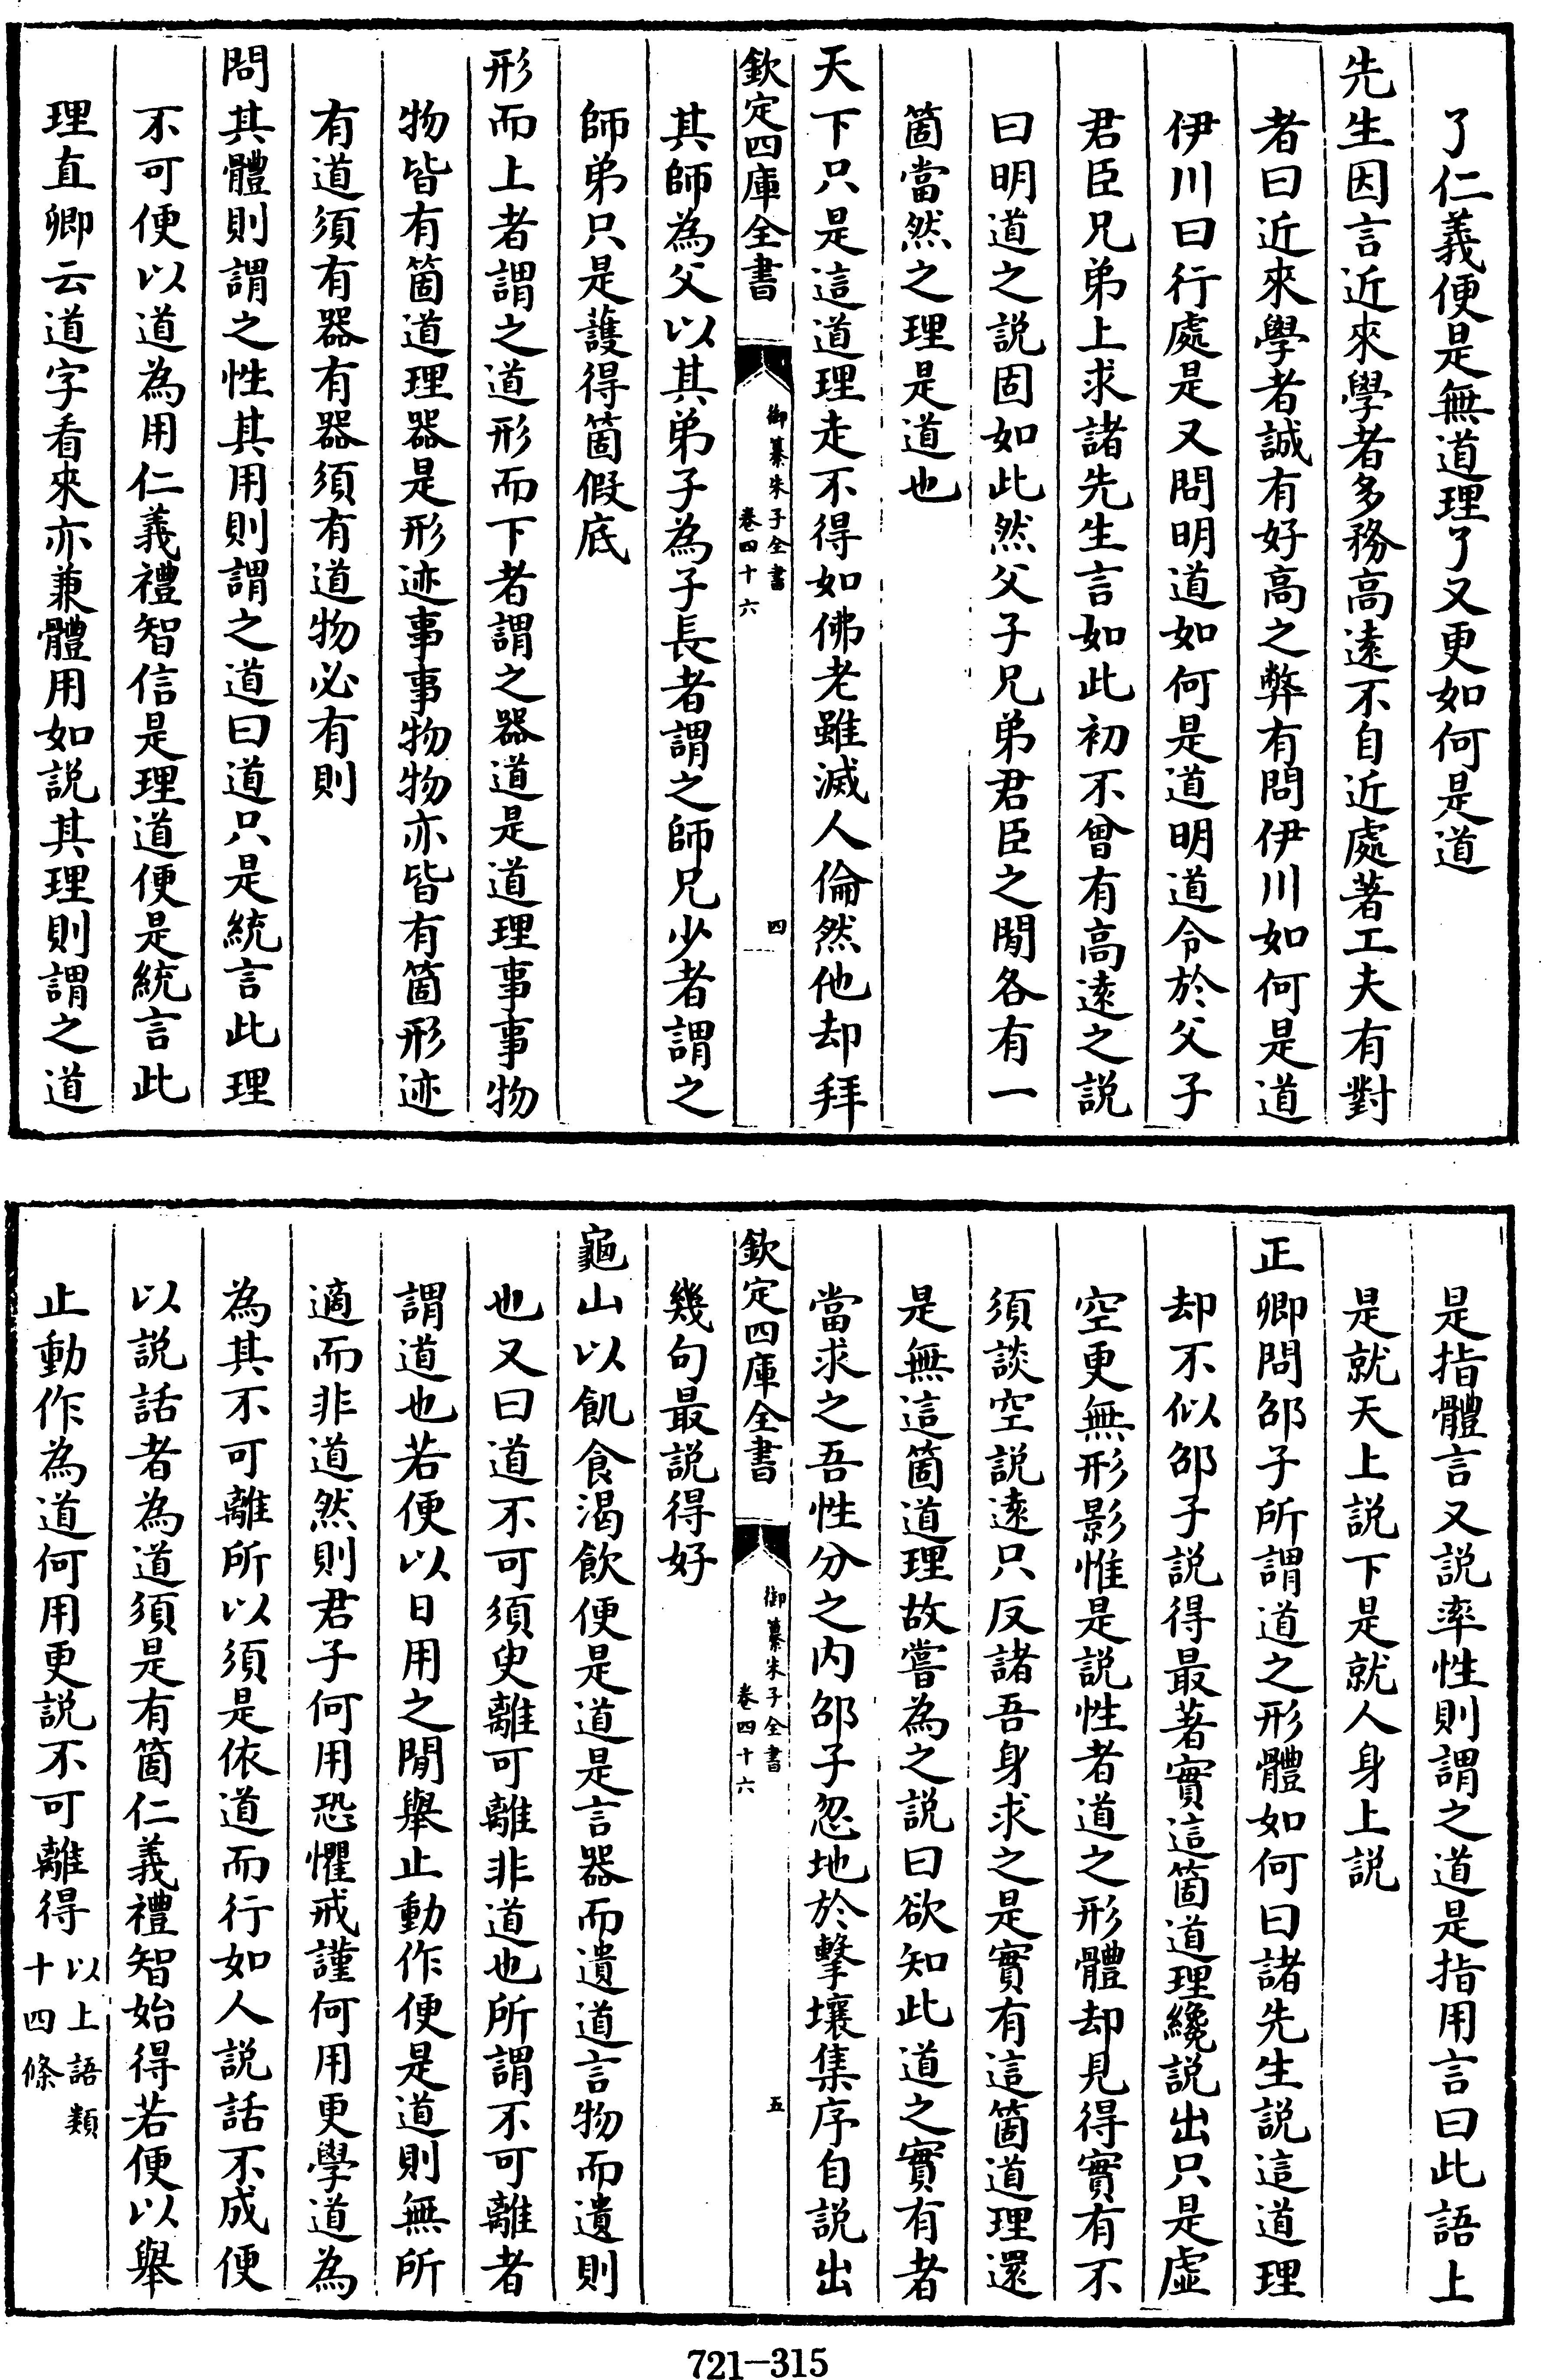 了仁義便是無道理了又更如何是道
先生因言近來學者多務高遠不自近處著工夫有對
者曰近來學者誠有好高之弊有問伊川如何是道
伊川曰行處是又問明道如何是道明道令於父子
君臣兄弟上求諸先生言如此初不曾有高遠之説
曰明道之説固如此然父子兄弟君臣之閒各有一
箇當然之理是道也
天下只是這道理走不得如佛老雖滅人倫然他却拜
欽定四庫全書
御纂朱子全書
卷四十六
四
其師為父以其弟子為子長者謂之師兄少者謂之
師弟只是䕶得箇假底
形而上者謂之道形而下者謂之器道是道理事事物
物皆有箇道理器是形迹事事物物亦皆有箇形迹
有道須有器有器須有道物必有則
問其體則謂之性其用則謂之道曰道只是統言此理
不可便以道為用仁義禮智信是理道便是統言此
理直卿云道字看來亦兼體用如説其理則謂之道
是指體言又説率性則謂之道是指用言曰此語上
是就天上説下是就人身上説
正卿問邵子所謂道之形體如何曰諸先生説這道理
却不似邵子説得最著實這箇道理纔説出只是虛
空更無形影惟是説性者道之形體却見得實有不
須談空説遠只反諸吾身求之是實有這箇道理還
是無這箇道理故嘗為之説曰欲知此道之實有者
當求之吾性分之内邵子忽地於擊壤集序自説出
欽定四庫全書
御纂朱子全書
卷四十六
五
幾句最説得好
龜山以飢食渴飲便是道是言器而遺道言物而遺則
也又曰道不可須臾離可離非道也所謂不可離者
謂道也若便以日用之閒舉止動作便是道則無所
適而非道然則君子何用恐懼戒謹何用更學道為
為其不可離所以須是依道而行如人説話不成便
以説話者為道須是有箇仁義禮智始得若便以舉
止動作為道何用更説不可離得以上語類
十四條
721-315